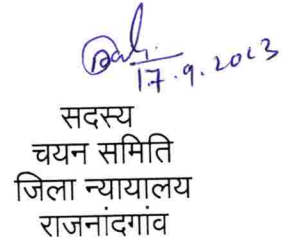 17.9.2013
सदस्य
चयन समिति
जिला न्यायालय
राजनांदगांव